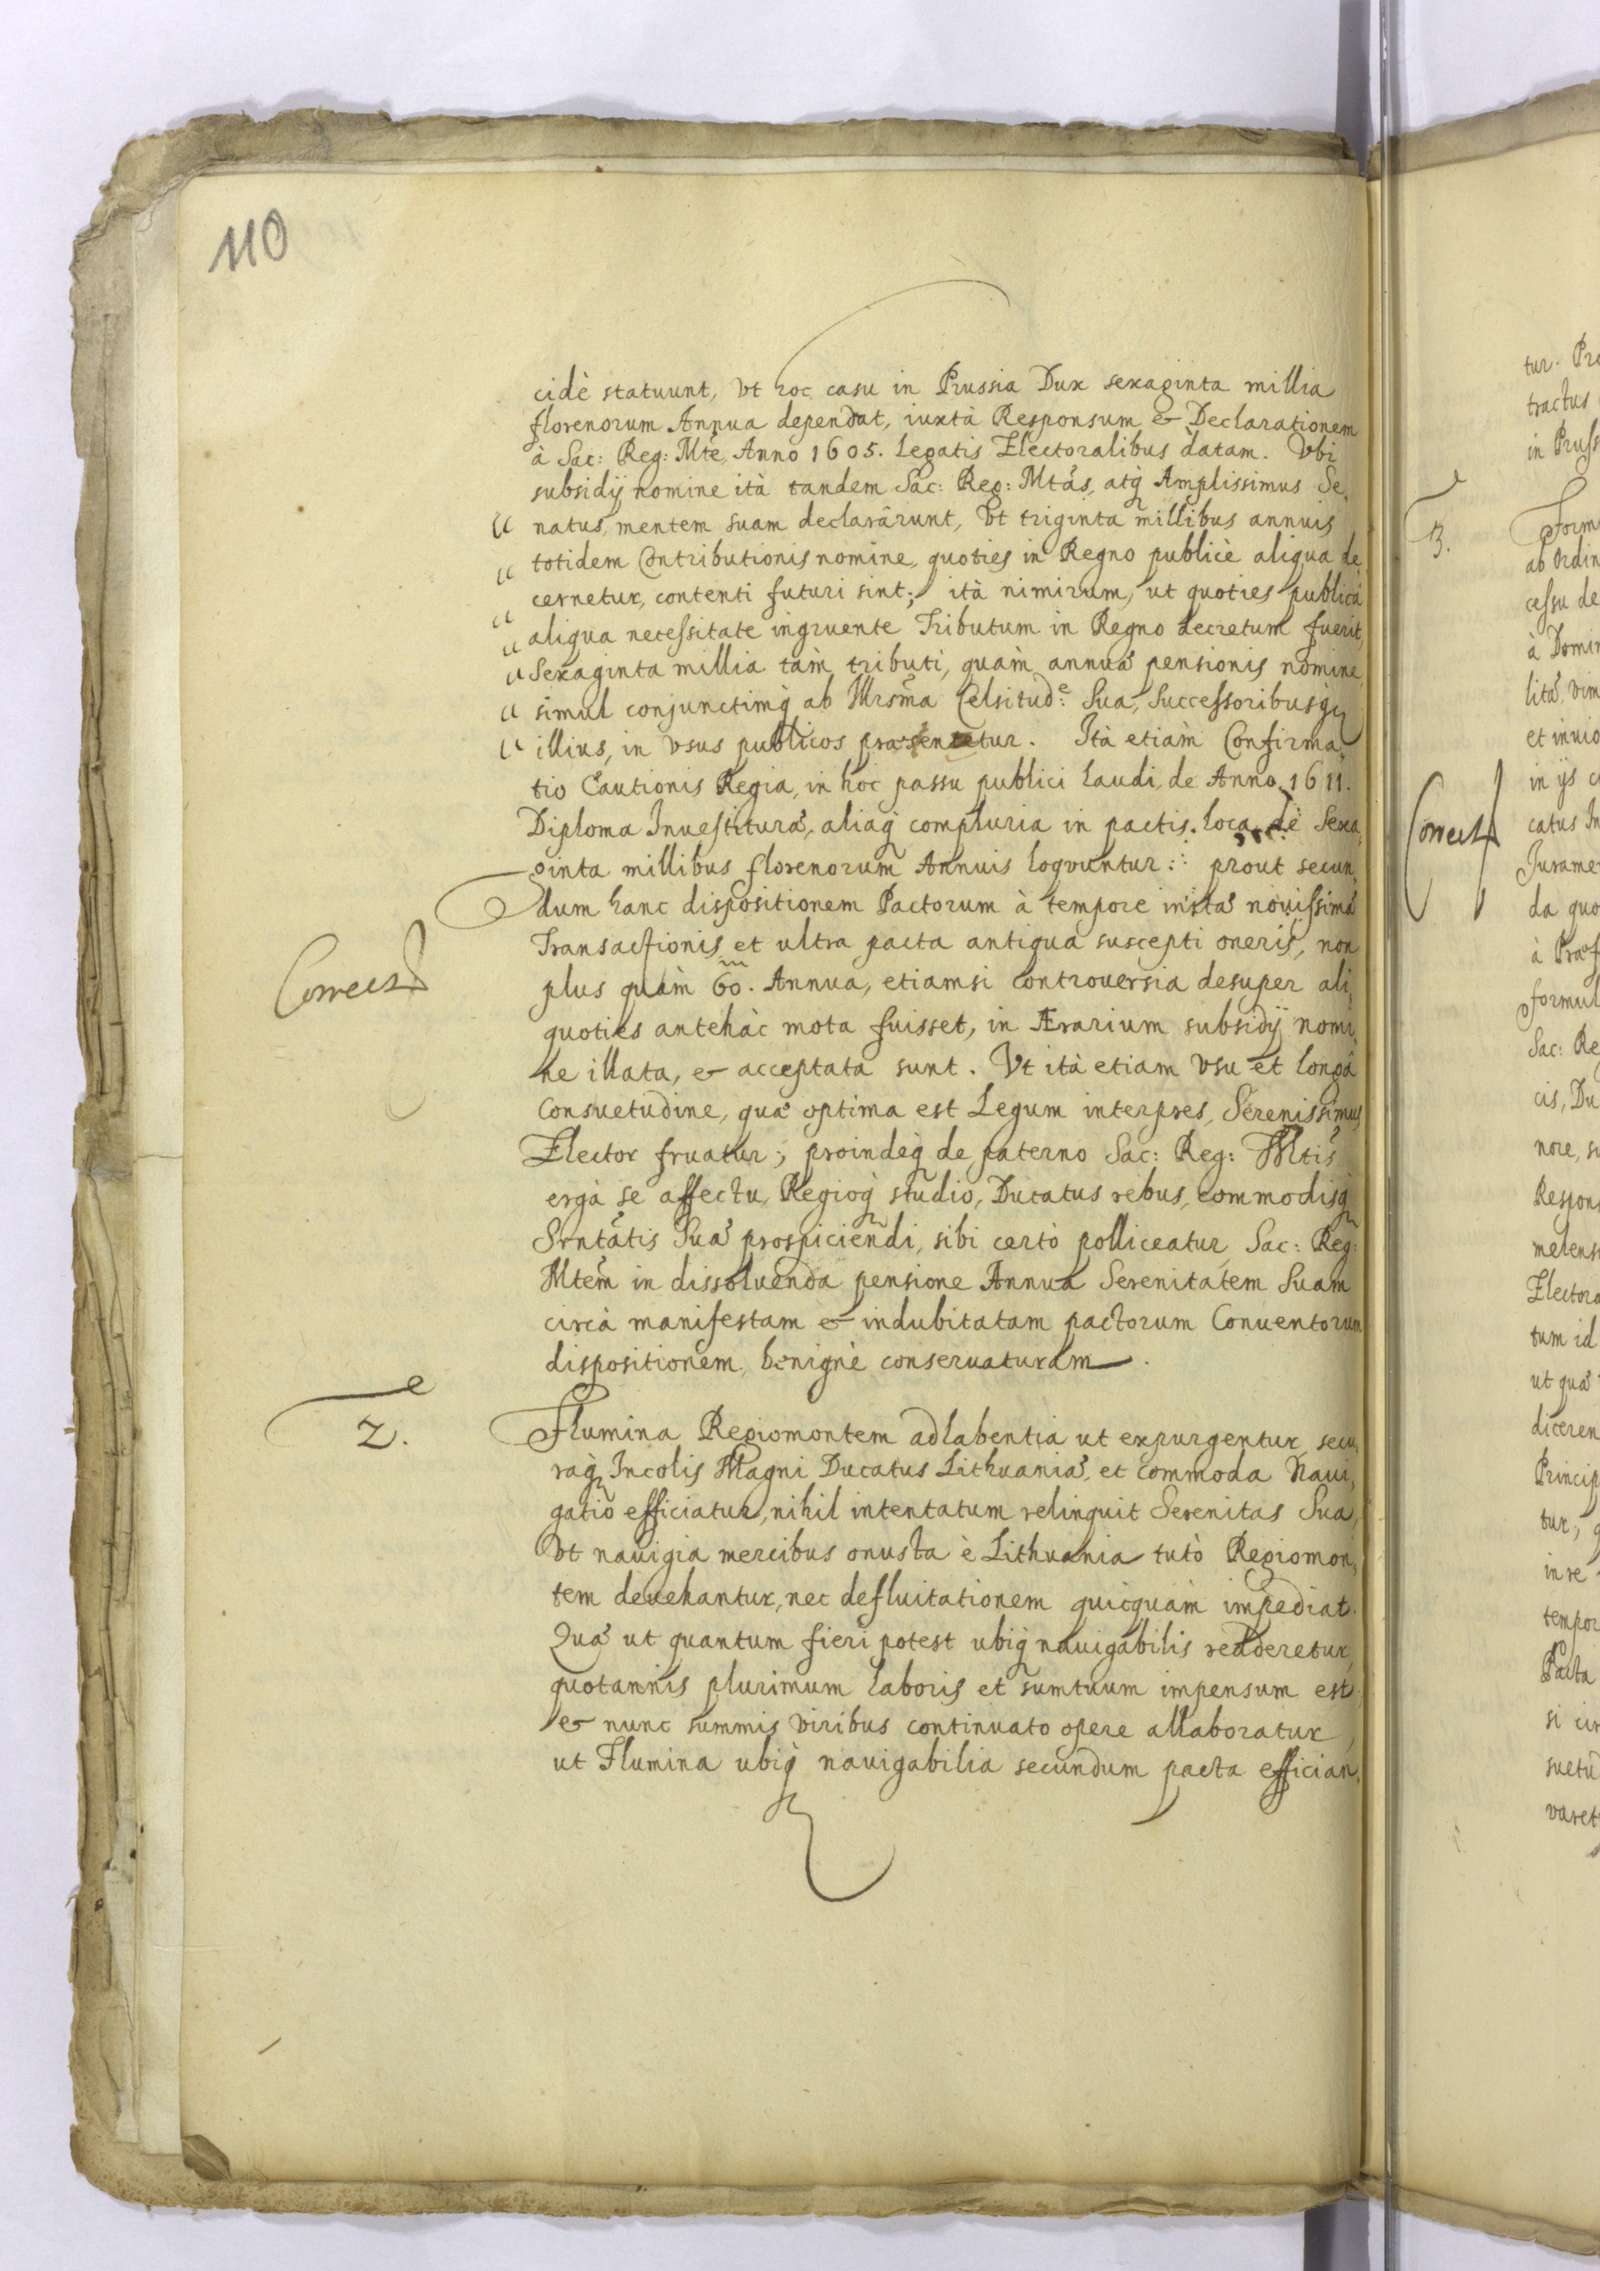 110
cidè statuunt, Vt hoc casu in Prussia Dux sexaginta millia
florenorum Annua dependat, iuxtà Responsum & Declarationem
à Sac: Reg: Mte, Anno 1605. Legatis Electoralibus datam. Vbi
subsidij nomine ità tandem Sac: Reg: Mtas, atq Amplissimus Se,
natus, mentem suam declarârunt, Vt triginta millibus annuis
totidem Contributionis nomine, quoties in Regno publicè aliqua de,
cernetur, contenti futuri sint; ità nimirum, ut quoties publicà
aliqua necessitate ingruente Tributum in Regno decretum fuerit,
Sexaginta millia tàm tributi, quàm annuæ pensionis nomine,
simul conjunctimq ab Illrsma Celsitude: Sua, Successoribusq
illius, in Vsus publicos præsentetur. Ità etiàm Confirma,
tio Cautionis Regia, in hoc passu publici laudi, de Anno 1611.
Diploma Inuestituræ, aliaq compluria in pactis loca, de Sexa,
ginta millibus florenorum Annuis loqvuntur: prout secun,
dum hanc dispositionem Pactorum à tempore initæ nouissimæ
Transactionis et ultra pacta antiqua suscepti oneris, non
Correct
plus quàm 60.m Annua, etiamsi controuersia desuper ali,
quoties antehàc mota fuisset, in Ærarium subsidij nomi,
ne illata, & acceptata sunt. Vt ità etiam Vsu et longâ
Consuetudine, quæ optima est Legum interpres, Serenissimus
Elector fruatur; proindeq de paterno Sac: Reg: Mtis
ergà se affectu, Regioq studio, Ducatus rebus, commodisq
Srntatis Suæ prospiciendi, sibi certò polliceatur, Sac: Reg:
Mtem in dissoluenda pensione Annua Serenitatem Suam
circà manifestam & indubitatam pactorum Conuentorum
dispositionem, benignè conseruaturam.
2. Flumina Regiomontem adlabentia ut expurgentur, secu,
raq Incolis Magni Ducatus Lithuaniæ, et commoda Naui,
gatio efficiatur, nihil intentatum relinquit Serenitas Sua,
Vt nauigia mercibus onusta è Lithuania tutò Regiomon,
tem deuehantur, nec defluitationem quicquàm impediat.
Quæ ut quantum fieri potest ubiq nauigabilis redderetur,
quotannis plurimum laboris et sumtuum impensum est
& nunc summis Viribus continuato opere allaboratur,
ut Flumina ubiq nauigabilia secundum pacta effician,
tractus
3.
ab Ordin
cessu de
in ijs
Correct
catus In
da quo
formul
Sac: Re
cis, Du
Respons
Electora
tum id
ut quæ
diceren
Princip
in re
tempor
Pacta
si cir